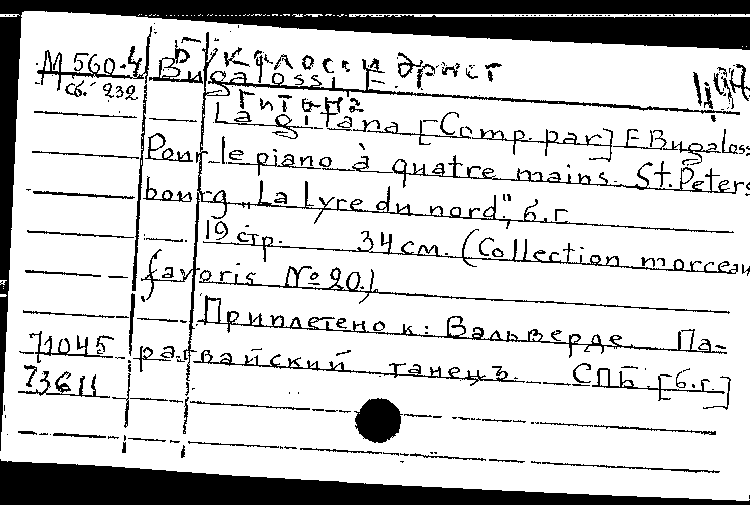 М 560.4 Букалосси Эрнст
сб. 232 Bugalossi E.
Гитана
La gitana [Comp. par] E. Bugaloss
Pour le piano à quatre mains. St. Peters
bourg, "La lyre du nord", б.г.
19 стр. 34 см. (Collection morceau
favoris № 20.)
Приплетено к: Вальверде. Па-
71045 рагвайский танецъ. СПБ. [б.г.]
73611